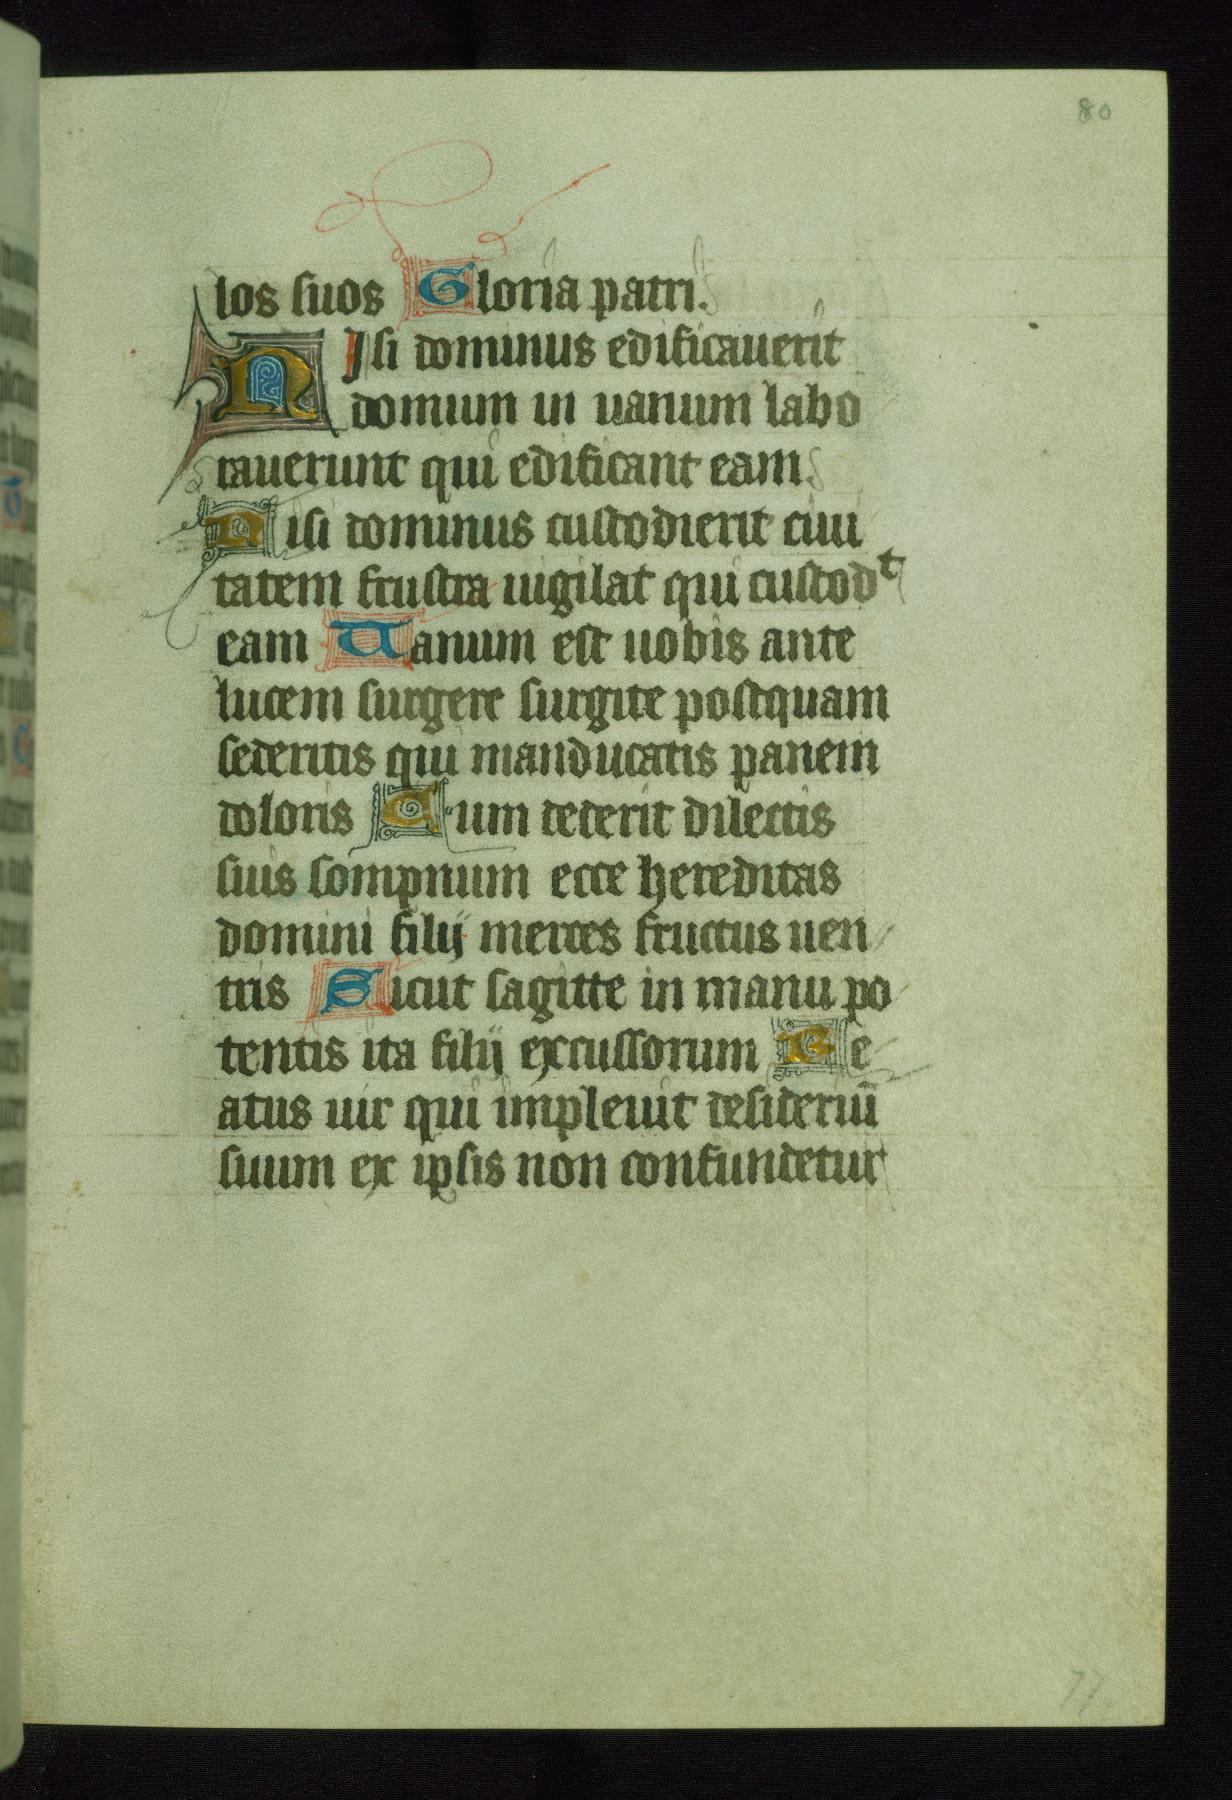 80
los suos Gloria patri.
Nisi dominus edificauerit
domum in uanum labo
rauerunt qui edificant eam
Nisi dominus custodierit ciui
tatem frustra uigilat qui custodᵗ
eam Uanum est uobis ante
lucem surgere surgite postquam
sederitis qui manducatis panem
doloris Cum dederit dilectis
suis sompnum ecce hereditas
domini filij merces fructus uen
tris Sicut sagitte in manu po
tentis ita filij excussorum Be
atus uir qui impleuit desideriū
suum ex ipsis non confundetur
77